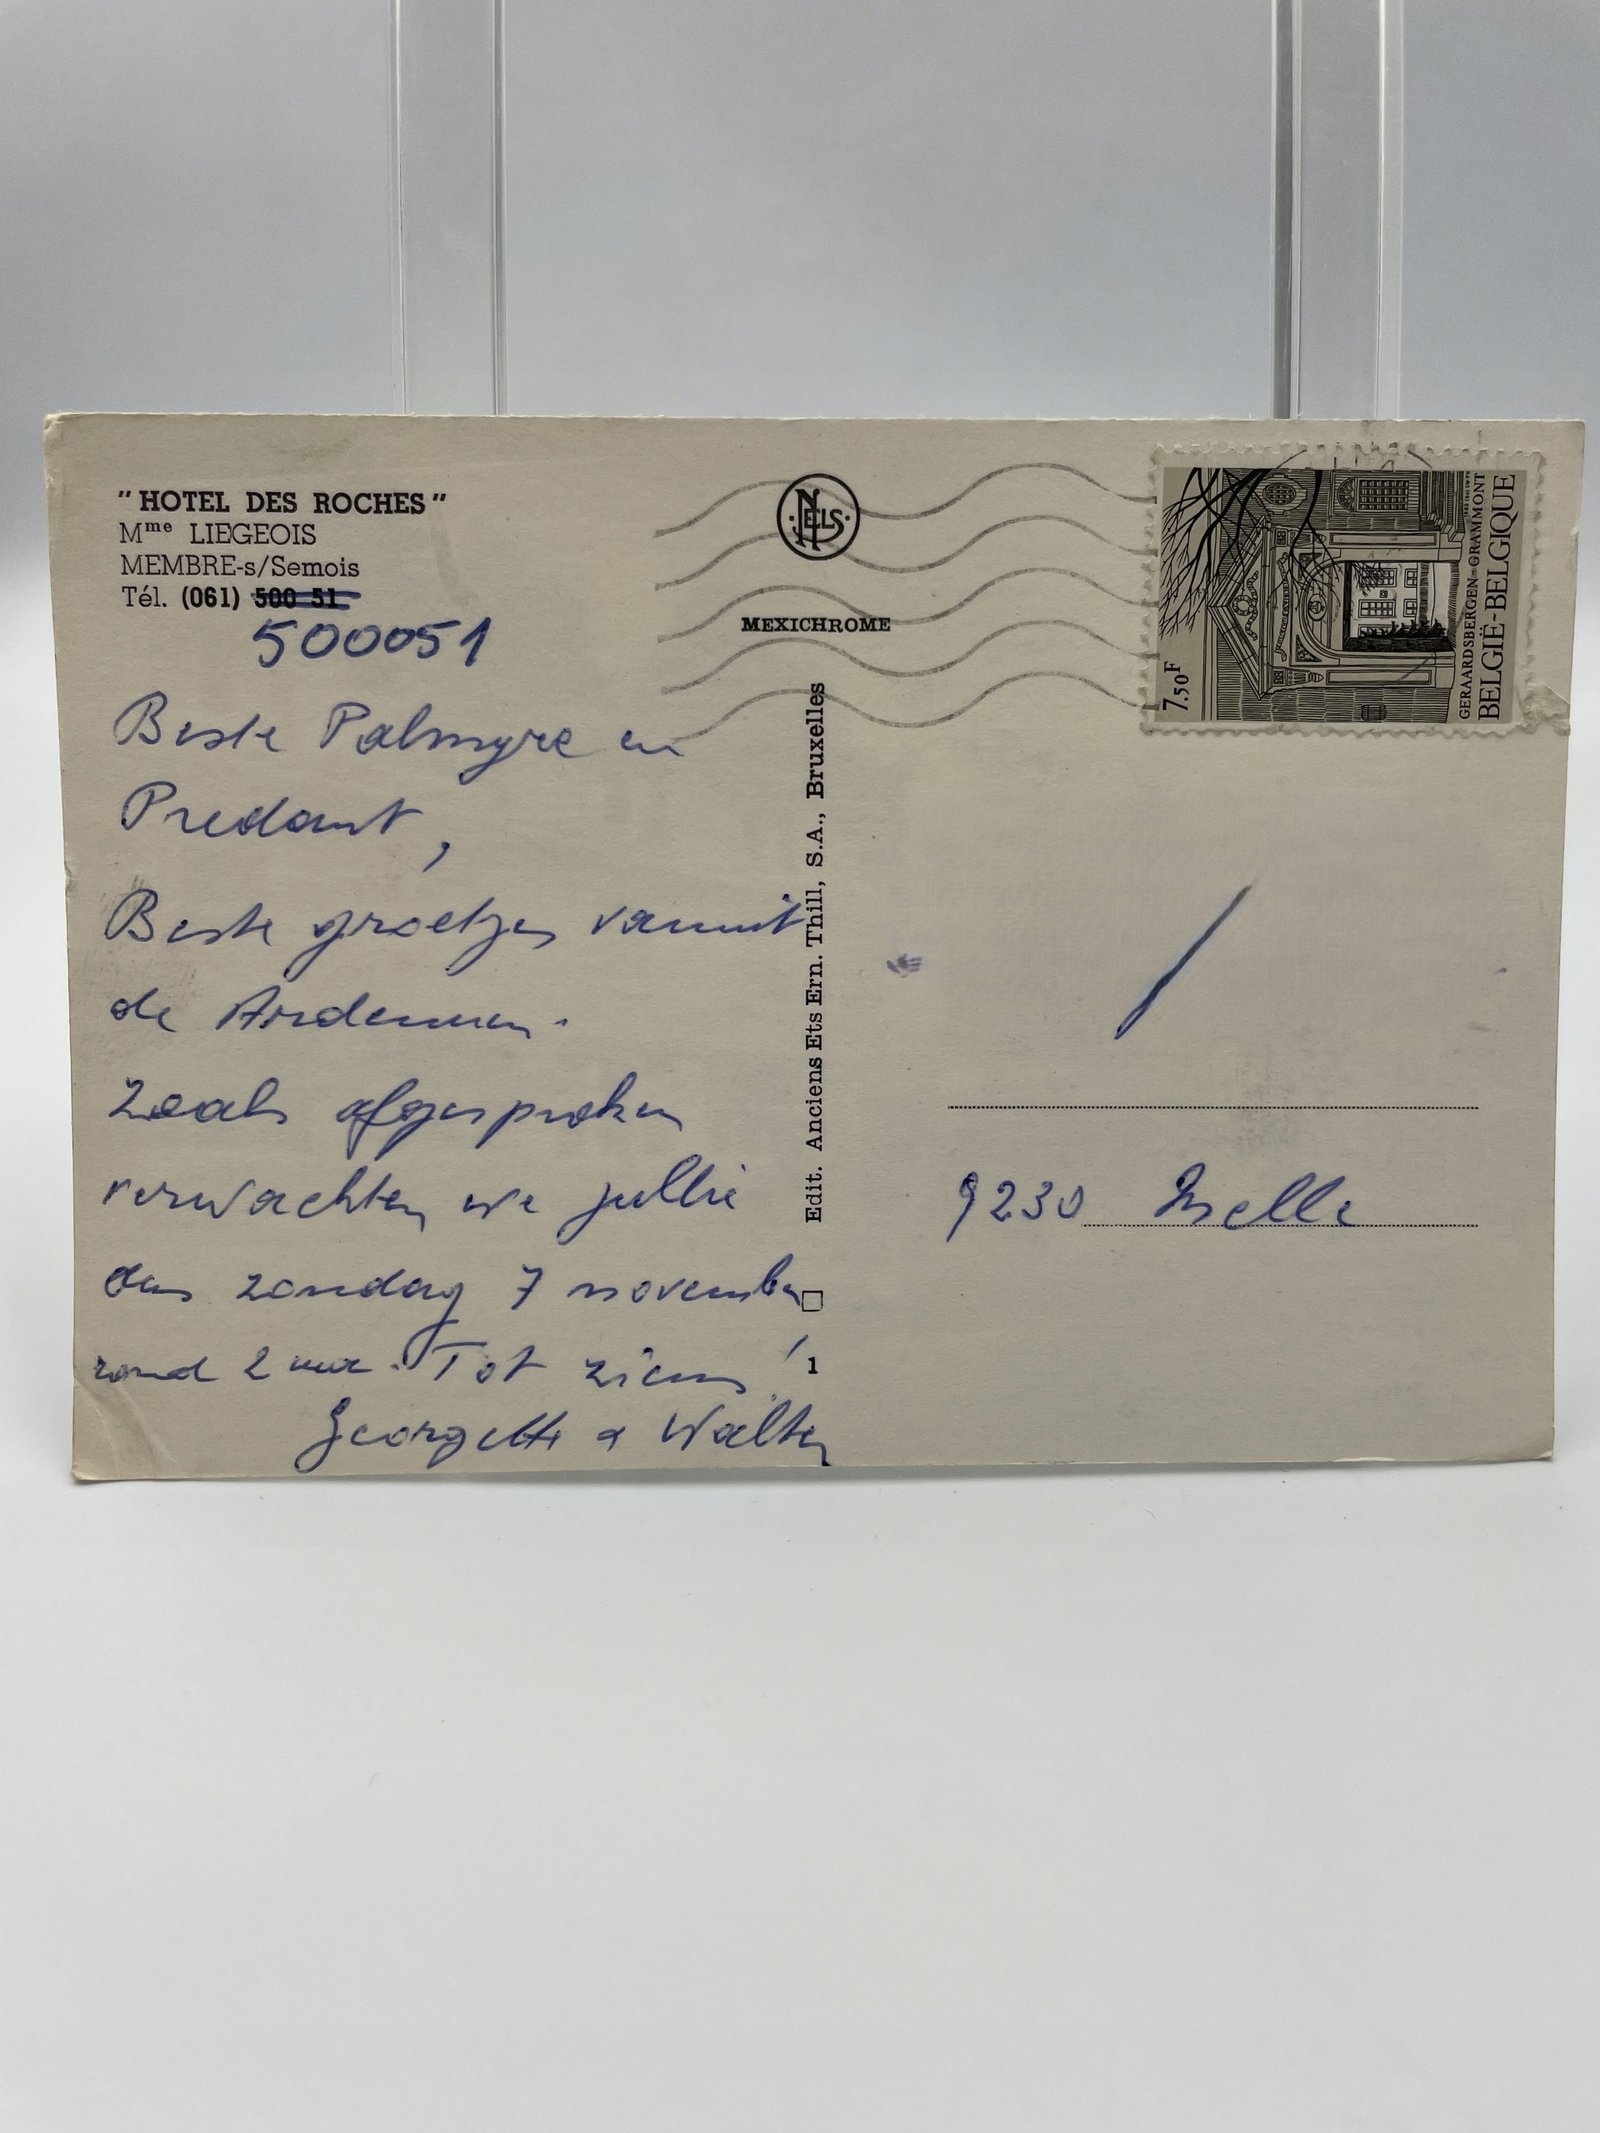 "HOTEL DES ROCHES"
Mme LIEGEOIS
MEMBRE-s/Semois
Tél. (061) 500 51
500051
Beste Palmyre en
Predant,
Beste groetjes vanuit
de Ardennen.
Zoals afgesproken
verwachten we jullie
dus zondag 7 november
rond 2 uur. Tot ziens!
Georgette & Walter
NELS
MEXICHROME
Edit. Anciens Ets Ern. Thill, S.A., Bruxelles
1
7,50F
GERAARDSBERGEN-GRAMMONT
BELGIË-BELGIQUE
9230 Melle